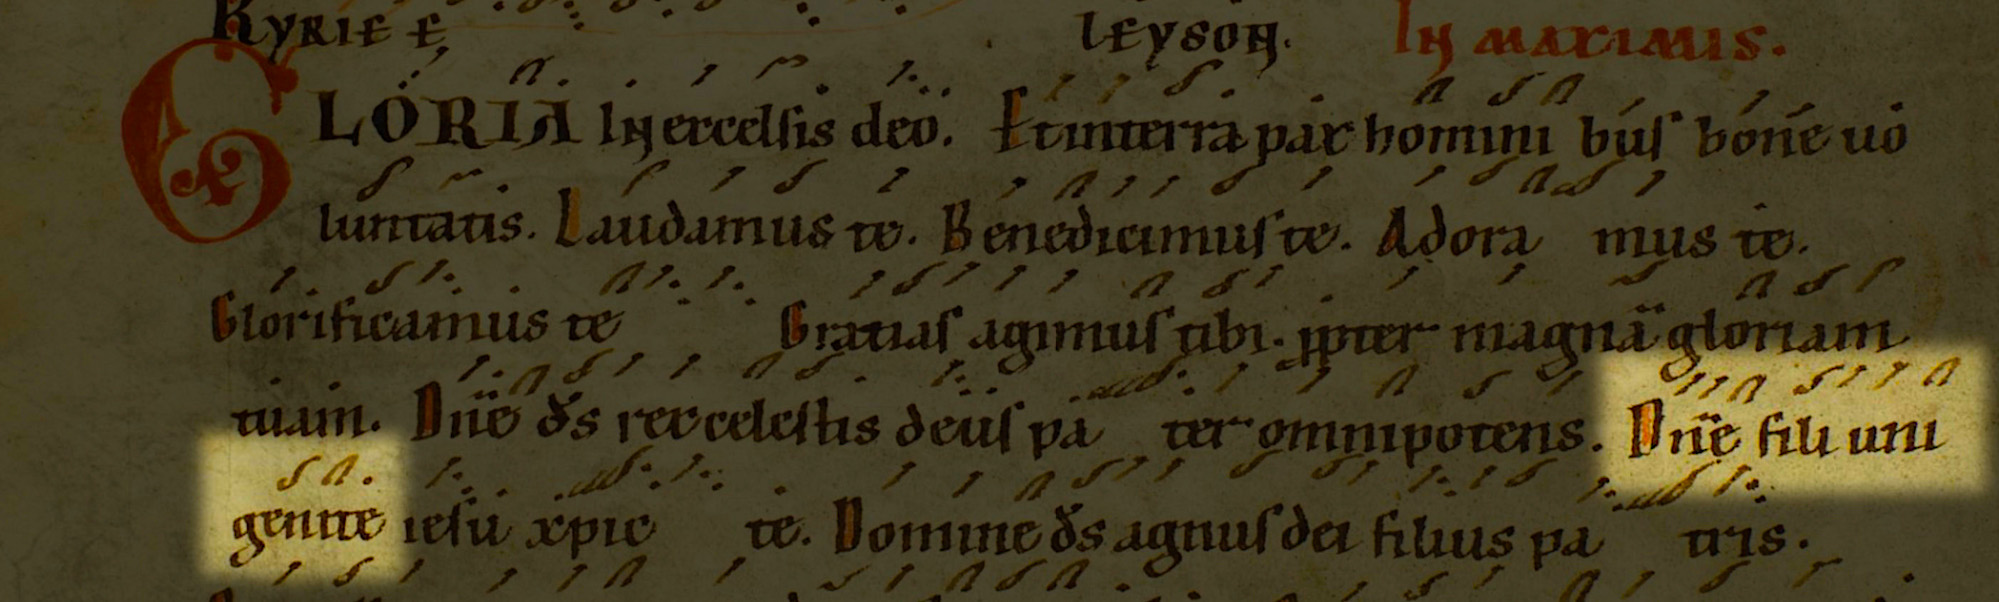 Kyrie e leyson. In maximis.
GLORIA In excelsis deo. Et in terra pax homini bus bone uo
luntatis. Laudamus te. Benedicimus te. Adora mus te.
Glorificamus te Gratias agimus tibi. ꝓpter magnā gloriam
tuam. Dn̄e d̄s rex celestis deus pa ter omnipotens. Dn̄e fili uni
genite iesu xpic te. Domine d̄s agnus dei filius pa tris.